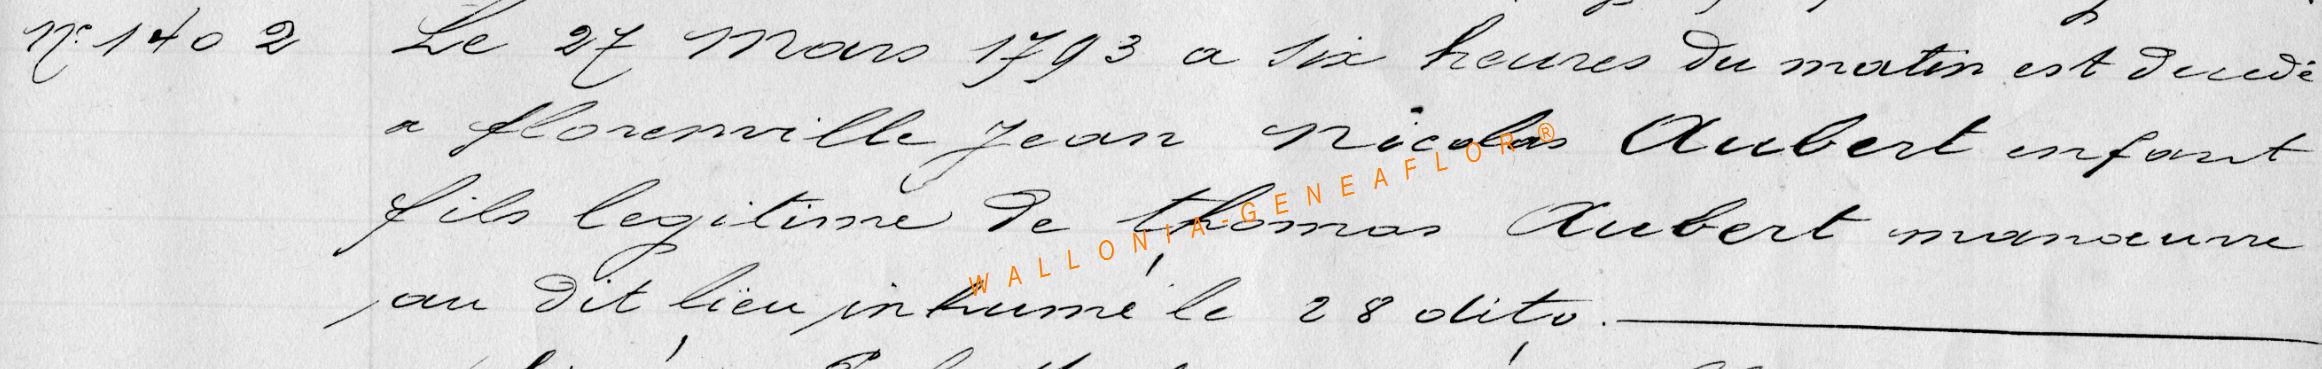 N° 1402 Le 27 Mars 1793 a six heures du matin est decedé
a florenville Jean Nicolas Aubert enfant
fils legitime de thomas Aubert manoeuvre
au dit lieu inhumé le 28 dito.
WALLONIA-GENEAFLOR®